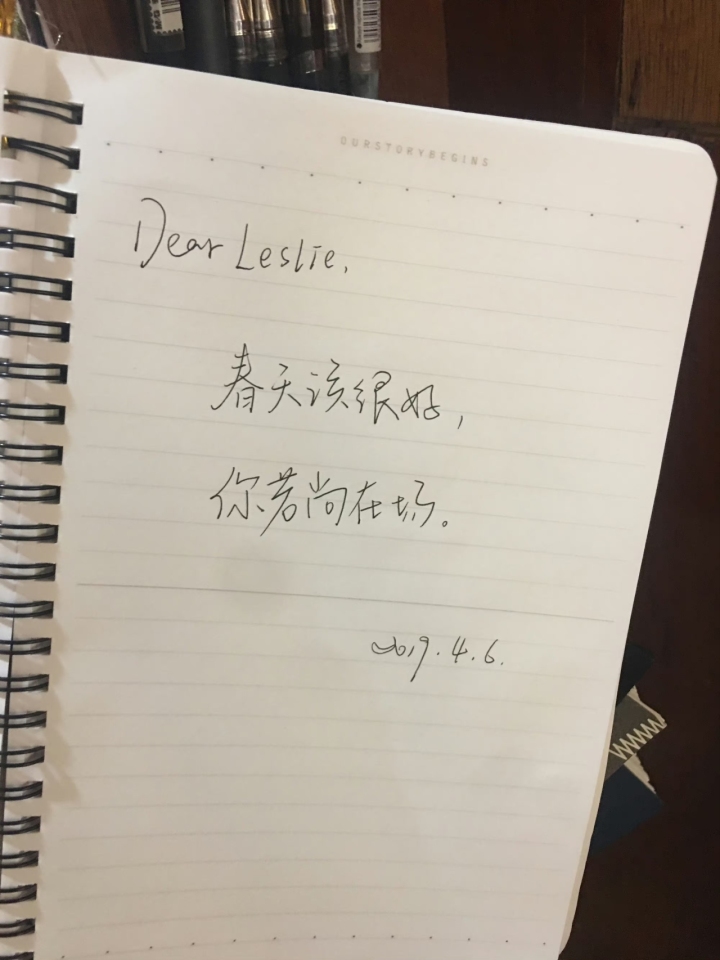 OURSTORYBEGINS
Dear Leslie,
春天该很好,
你若尚在场。
2019.4.6.